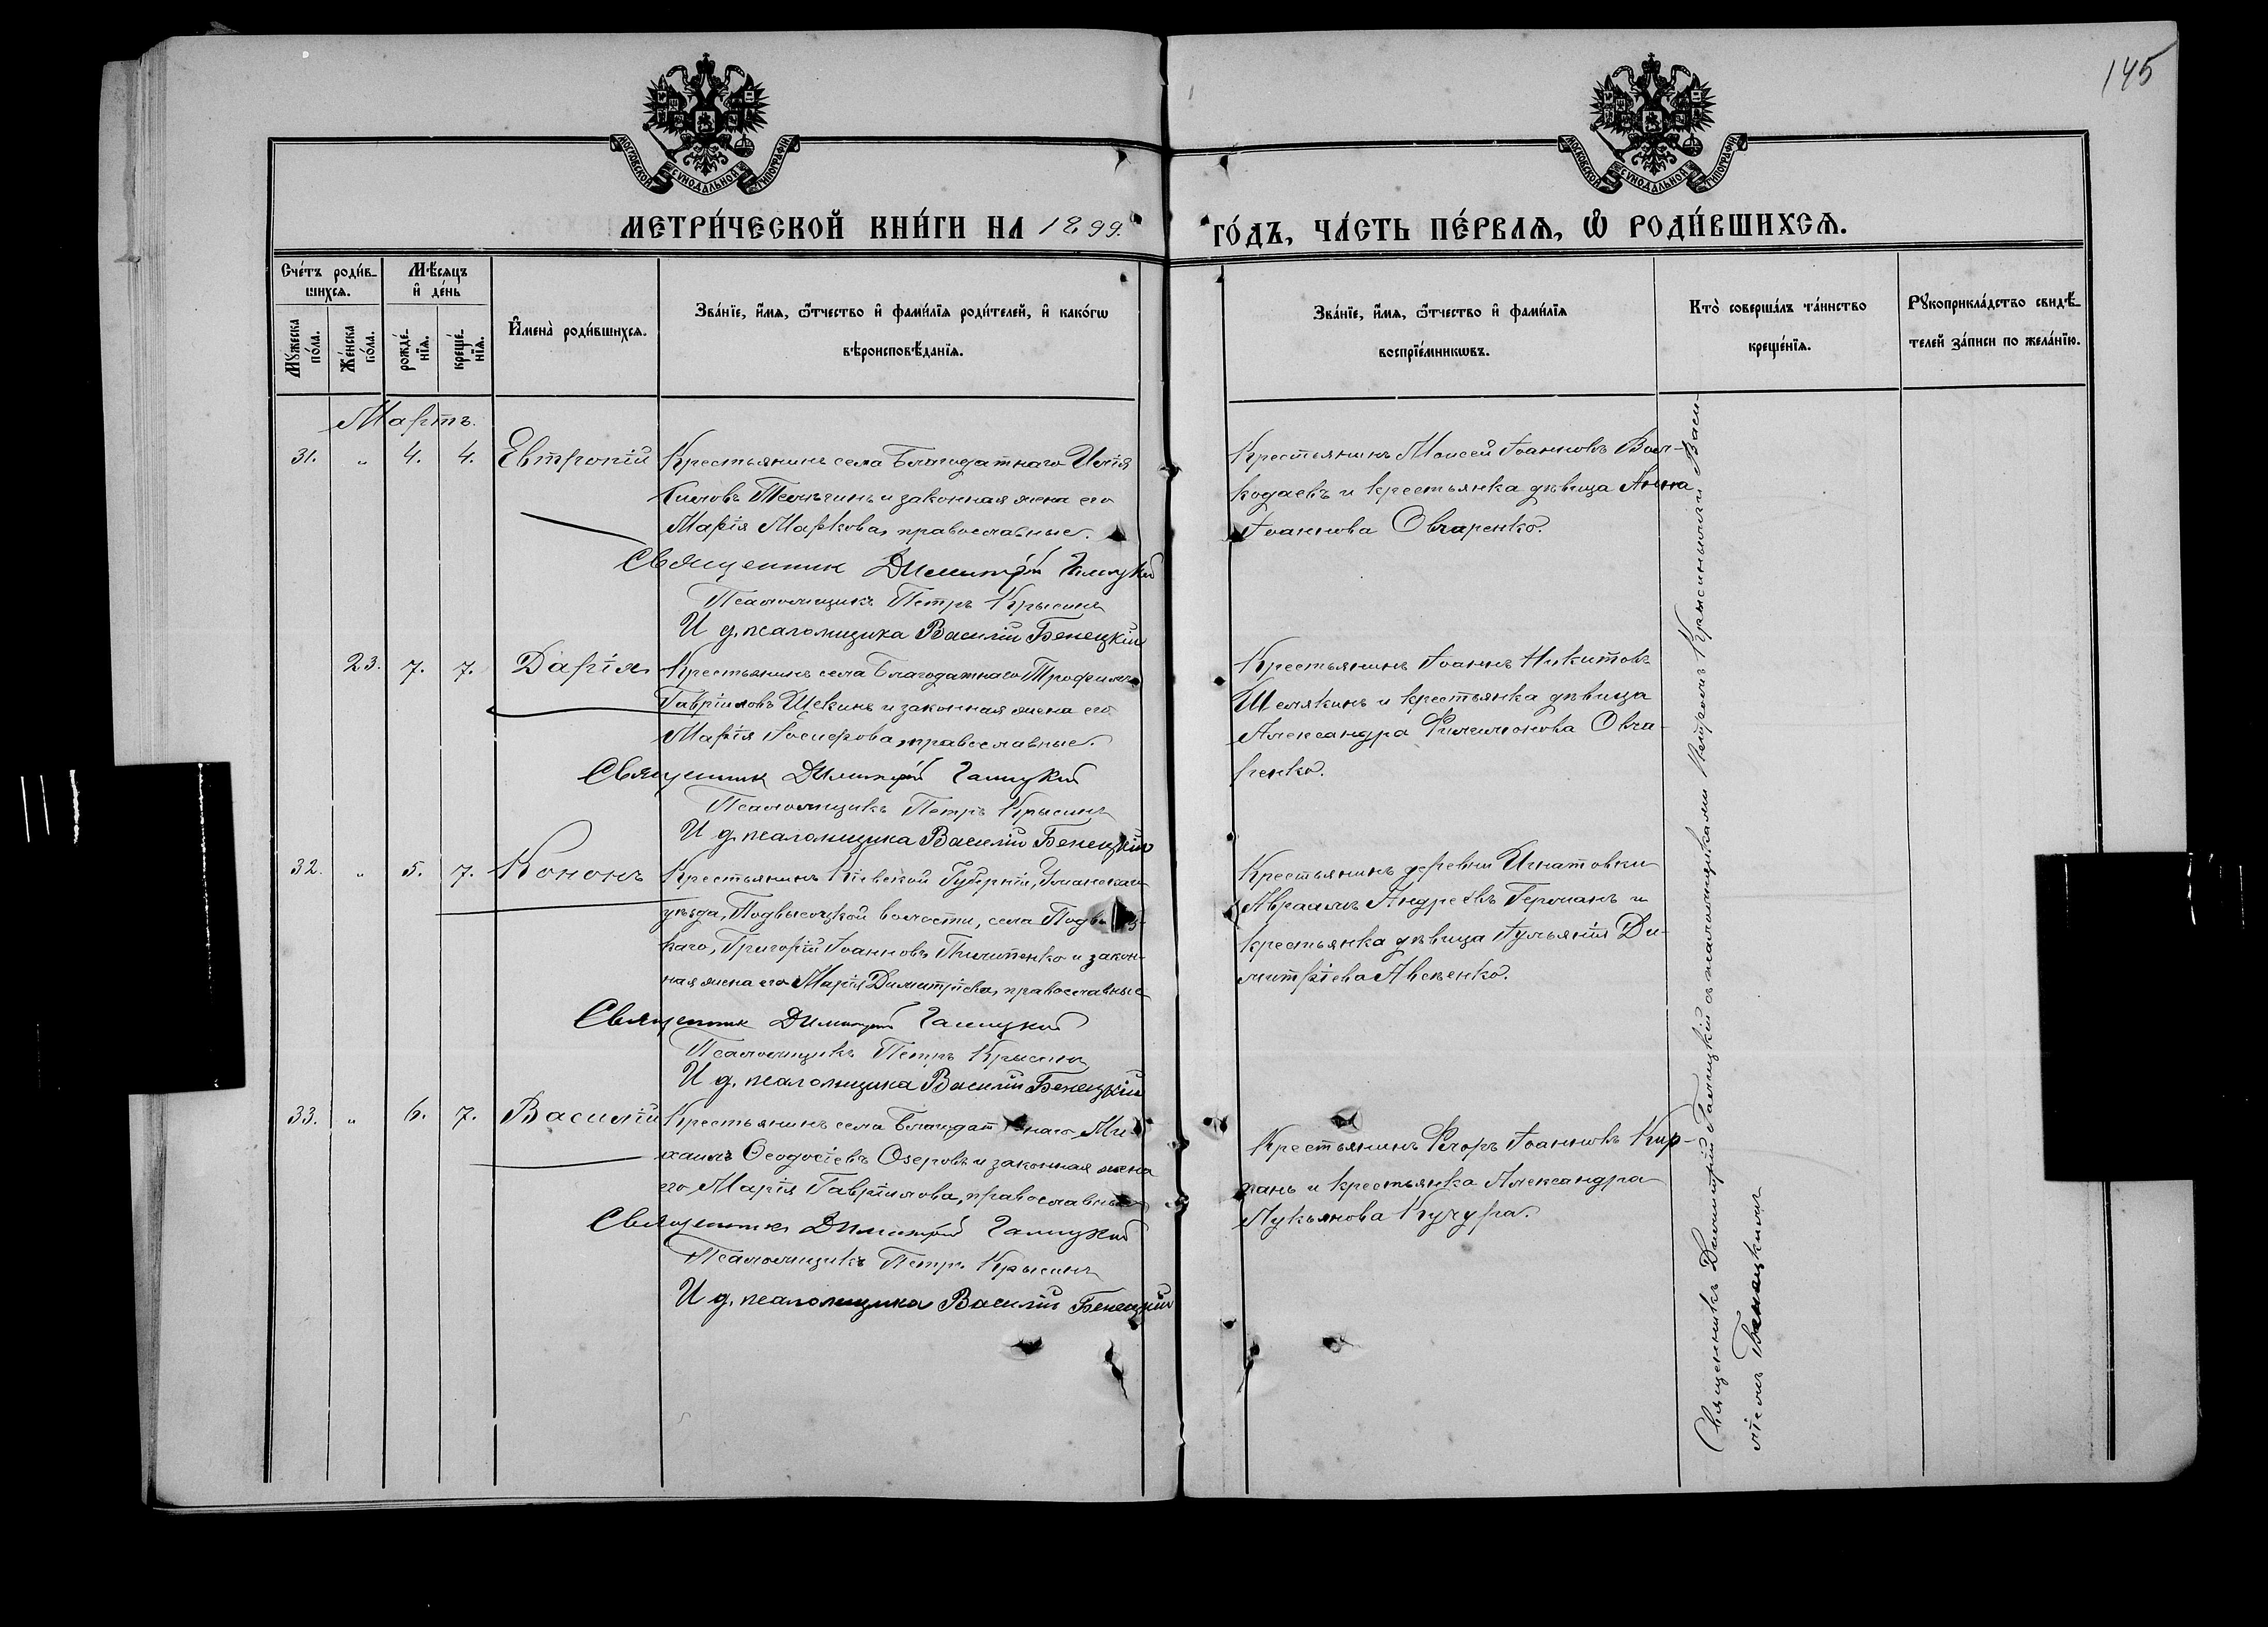 145
МОСКОВСКОЙ СѴНОДАЛЬНОЙ ТИПОГРАФІИ
МОСКОВСКОЙ СѴНОДАЛЬНОЙ ТИПОГРАФІИ
МЕТРИ́ЧЕСКОЙ КНИ́ГИ НА 1899.
ГО́ДЪ, ЧА́СТЬ ПЕ́РВАѦ, Ѡ РОДИ́ВШИХСѦ.
Сче́тъ роди́в-
шихсѧ.
Мѣ́сѧцъ
и де́нь
Мꙋжеска
по́ла.
Же́нска
по́ла.
рожде́-
нїѧ.
креще́-
нїѧ.
И҆мена̀ роди́вшихсѧ.
Зва́нїе, и҆́мѧ, ѻ҆́тчество и҆ фами́лїѧ роди́телей, и҆ како́гѡ
вѣроисповѣ́данїѧ.
Зва́нїе, и҆́мѧ, ѻ҆́тчество и҆ фами́лїѧ
воспрїе́мникѡвъ.
Кто̀ соверша́лъ та́инство
креще́нїѧ.
Рꙋкоприкла́дство свидѣ́-
телей за́писи по жела́нїю.
Мартъ.
31. „ 4. 4. Евтропій Крестьянинъ села Благодатнаго Илія
Марія Маркова, православные.
Священник Димитрій Галицкій
Псаломщикъ Петръ Крысинъ
И д. псаломщика Василій Бенецкій
Крестьянинъ Моисей Іоанновъ Вол-
кодаевъ и крестьянка дѣвица Анна
Іоаннова Овчаренко.
23. 7. 7. Дарія Крестьянинъ села Благодатнаго Трофимъ
Гавріиловъ Щекинъ и законная жена его
Марія Іосифова, православные.
Священник Димитрій Галицкій
Псаломщикъ Петръ Крысинъ
И д. псаломщика Василій Бенецкій
Крестьянинъ Іоаннъ Никитовъ
Шелякинъ и крестьянка дѣвица
Александра Филимонова Овча-
ренко.
32. „ 5. 7. Кононъ Крестьянинъ Кіевской Губерніи, Уманскаго
уѣзда, Подвысоцкой волости, села
каго, Григорій Іоанновъ Пилипенко и закон-
ная жена его Марія Димитріева, православные
Священник Димитрій Галицкій
Псаломщикъ Петръ Крысинъ
И д. псаломщика Василій Бенецкій
Крестьянинъ деревни Игнатовки
Авраамъ Андреевъ Германъ и
крестьянка дѣвица Іульянія Ди-
митріева Авсѣенко.
33. „ 6. 7. Василій Крестьянинъ села Благодатнаго Ми-
хаилъ Ѳеодосіевъ Озеровъ и законная жена
его Марія Гавріилова, православные
Священник Димитрій Галицкій
Псаломщикъ Петръ Крысинъ
И д. псаломщика Василій Бенецкій
Крестьянинъ Егоръ Іоанновъ
и крестьянка Александра
Лукьянова Кучура.
Священникъ Димитрій Галицкій съ псаломщиками Петромъ Крысинымъ и Васи-
ліемъ Бенецкимъ